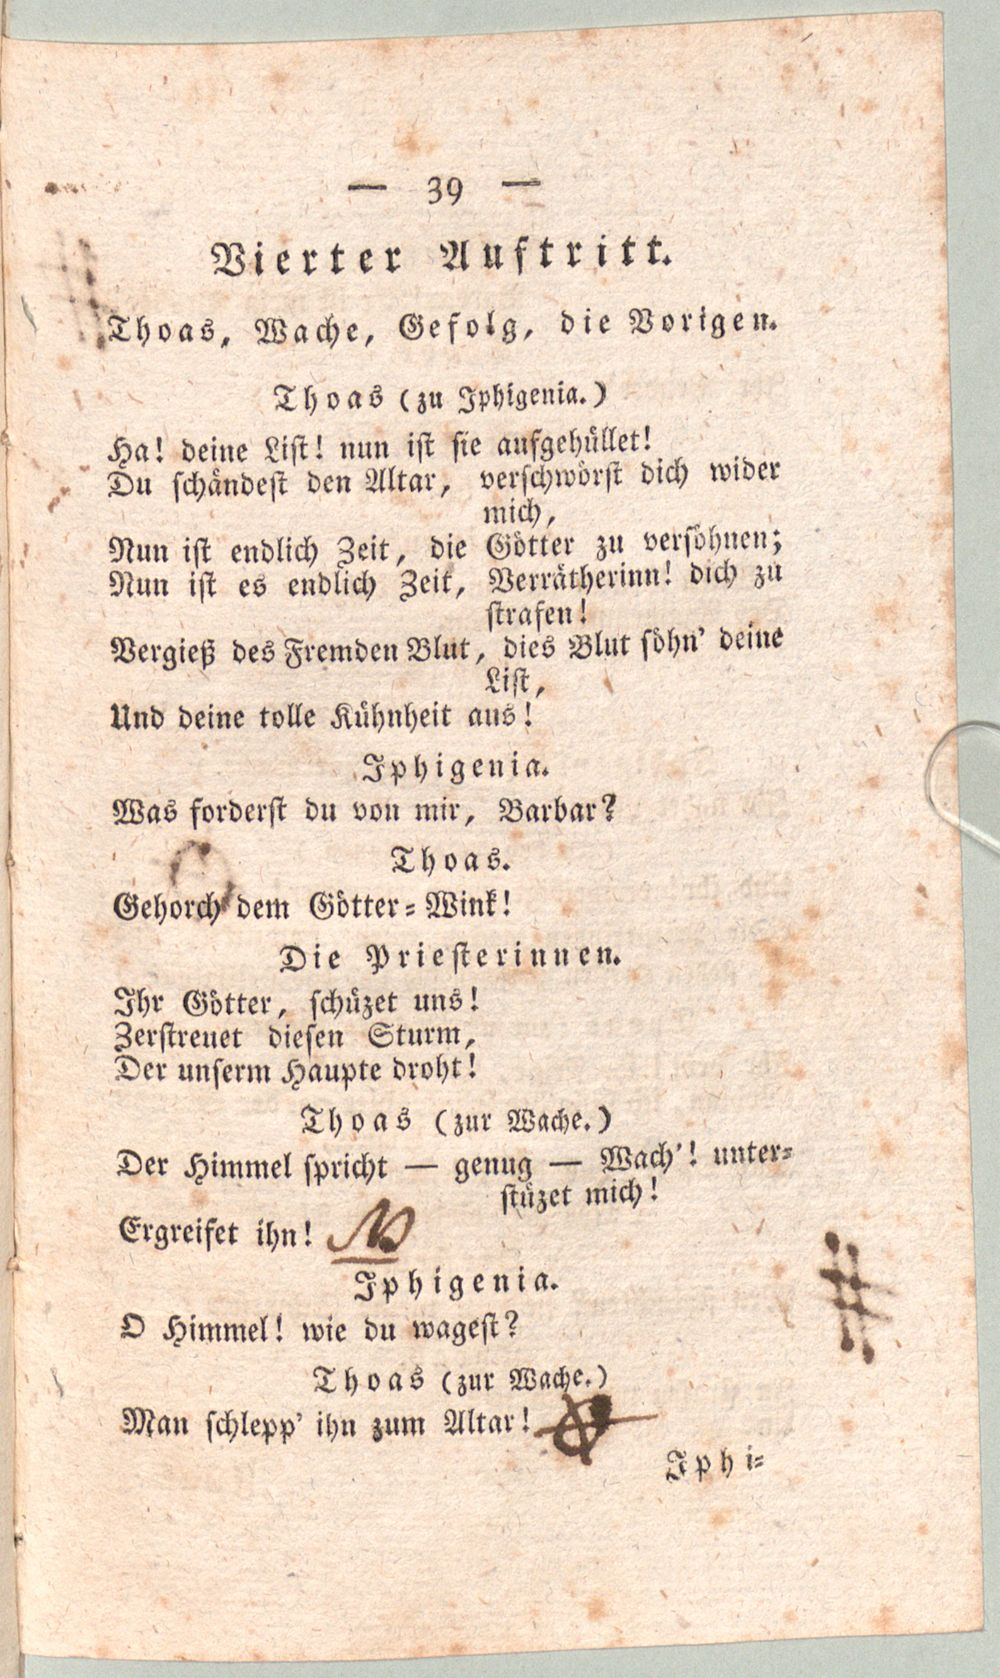 — 39 —
Vierter Auftritt.
Thoas, Wache, Gefolg, die Vorigen.
Thoas (zu Iphigenia.)
Ha! deine List! nun ist sie aufgehüllet!
Du schändest den Altar, verschwörst dich wider
mich,
Nun ist endlich Zeit, die Götter zu versöhnen;
Nun ist es endlich Zeit, Verrätherinn! dich zu
strafen!
Vergieß des Fremden Blut, dies Blut söhn' deine
List,
Und deine tolle Kühnheit aus!
Iphigenia.
Was forderst du von mir, Barbar?
Thoas.
Gehorch dem Götter-Wink!
Die Priesterinnen.
Ihr Götter, schüzet uns!
Zerstreuet diesen Sturm,
Der unserm Haupte droht!
Thoas (zur Wache.)
Der Himmel spricht — genug — Wach'! unter-
stüzet mich!
Ergreifet ihn!
Iphigenia.
O Himmel! wie du wagest?
Thoas (zur Wache.)
Man schlepp' ihn zum Altar!
Iphi-